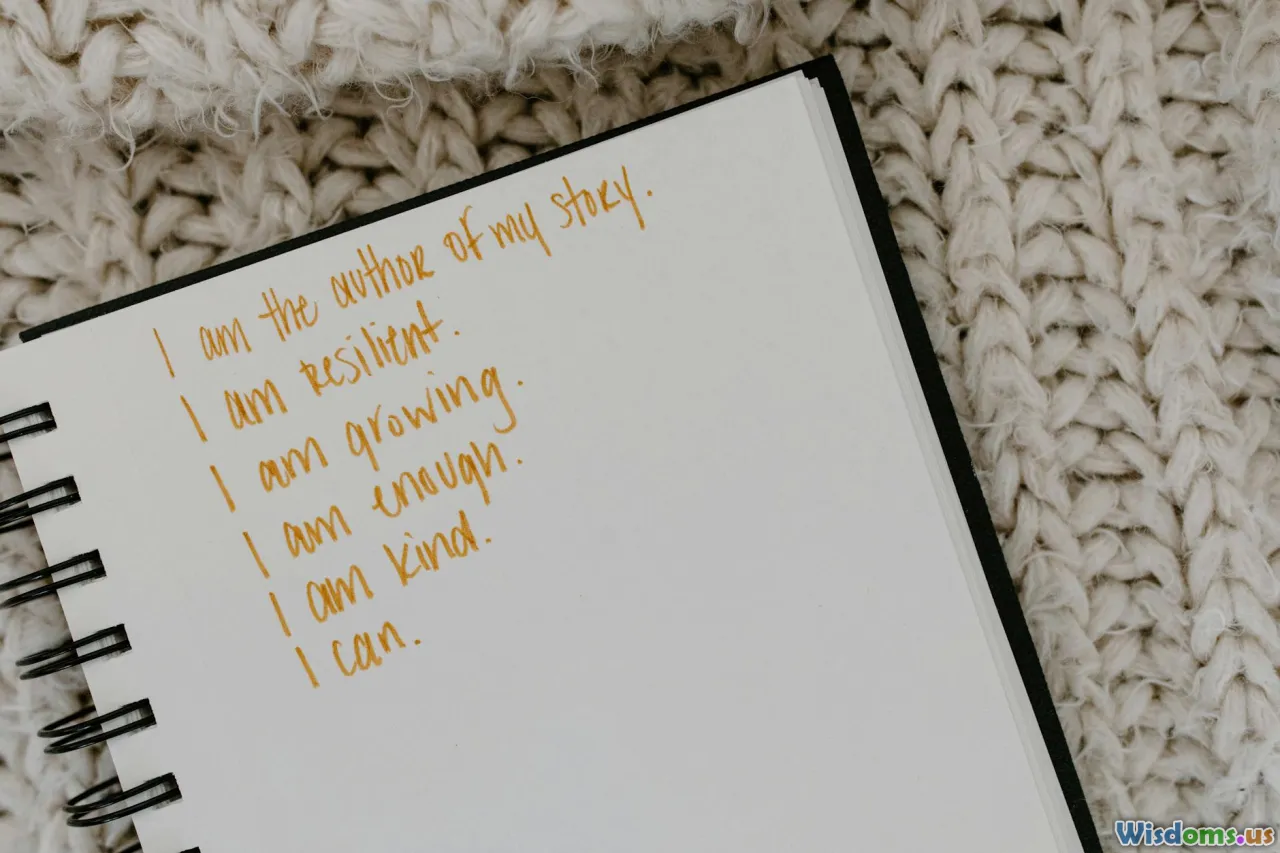 I am the author of my story.
I am resilient.
I am growing.
I am enough.
I am kind.
I can.
Wisdoms.us